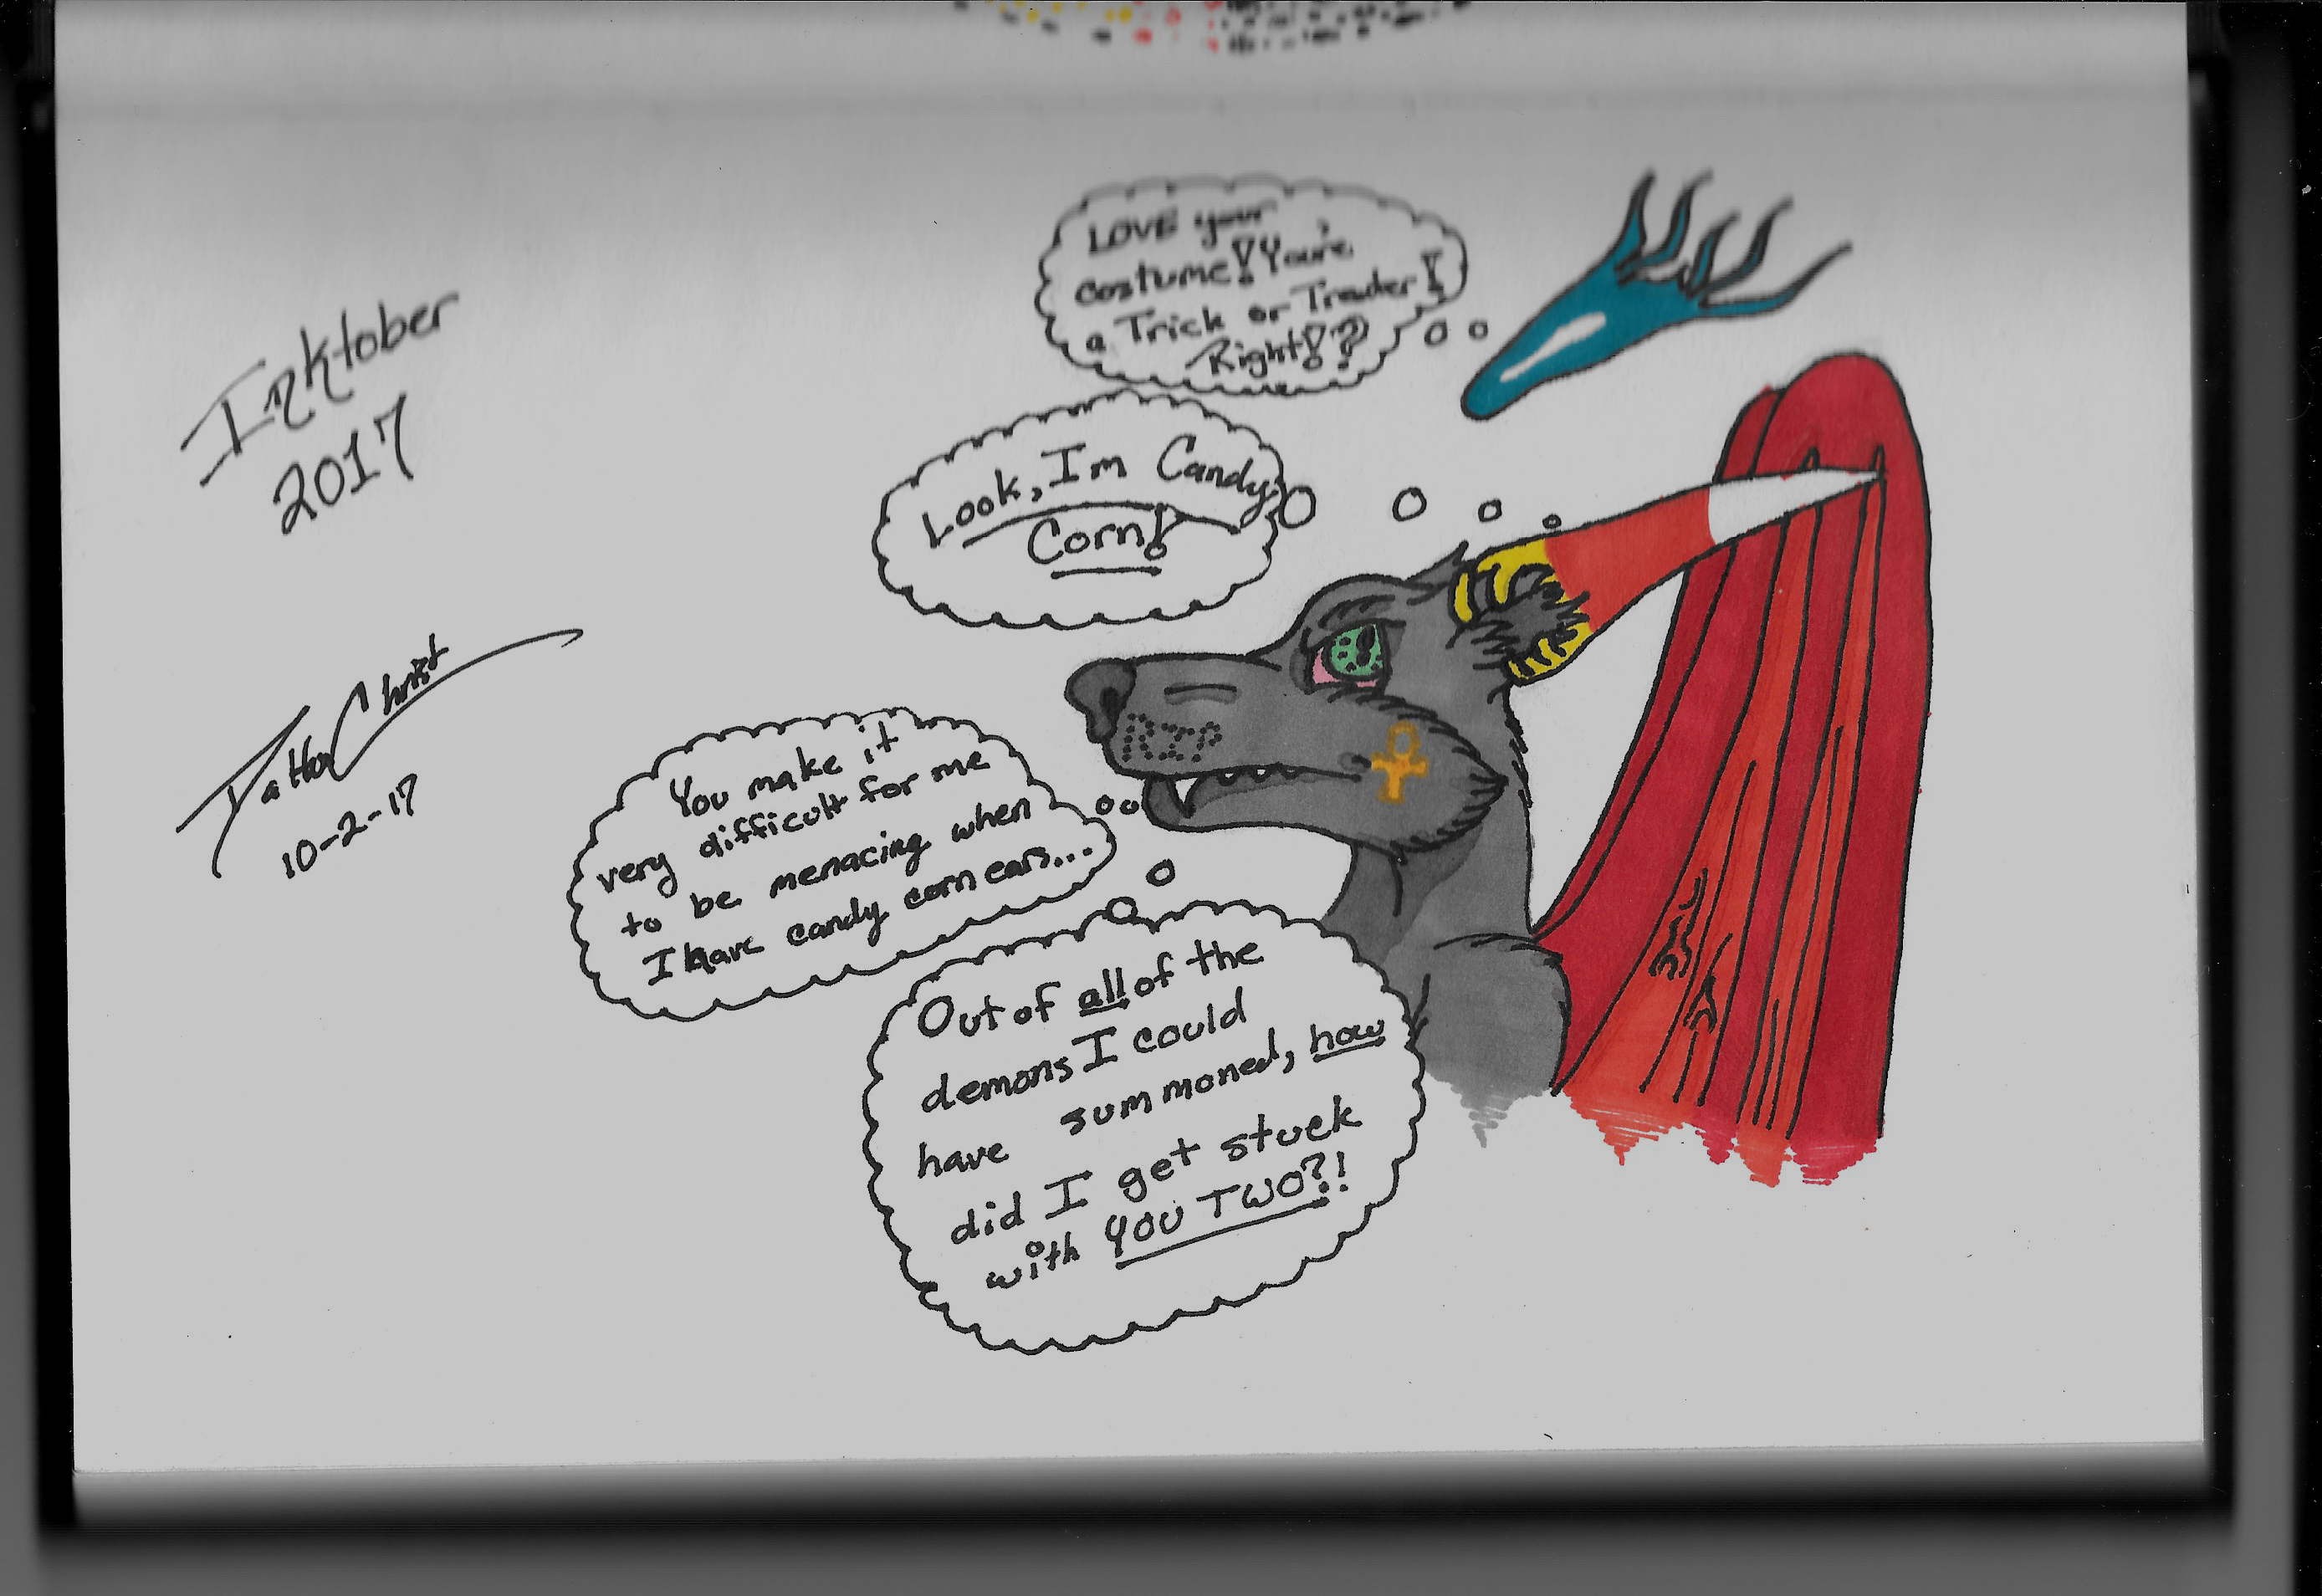 Inktober
2017
10-2-17
LOVE your
costume! You're
a Trick or Treater!
Right!?
Look, Im Candy
Corn!
RIP
You make it
very difficult for me
to be menacing when
I have candy corn ears...
Out of all of the
demons I could
have summoned, how
did I get stuck
with YOU TWO?!